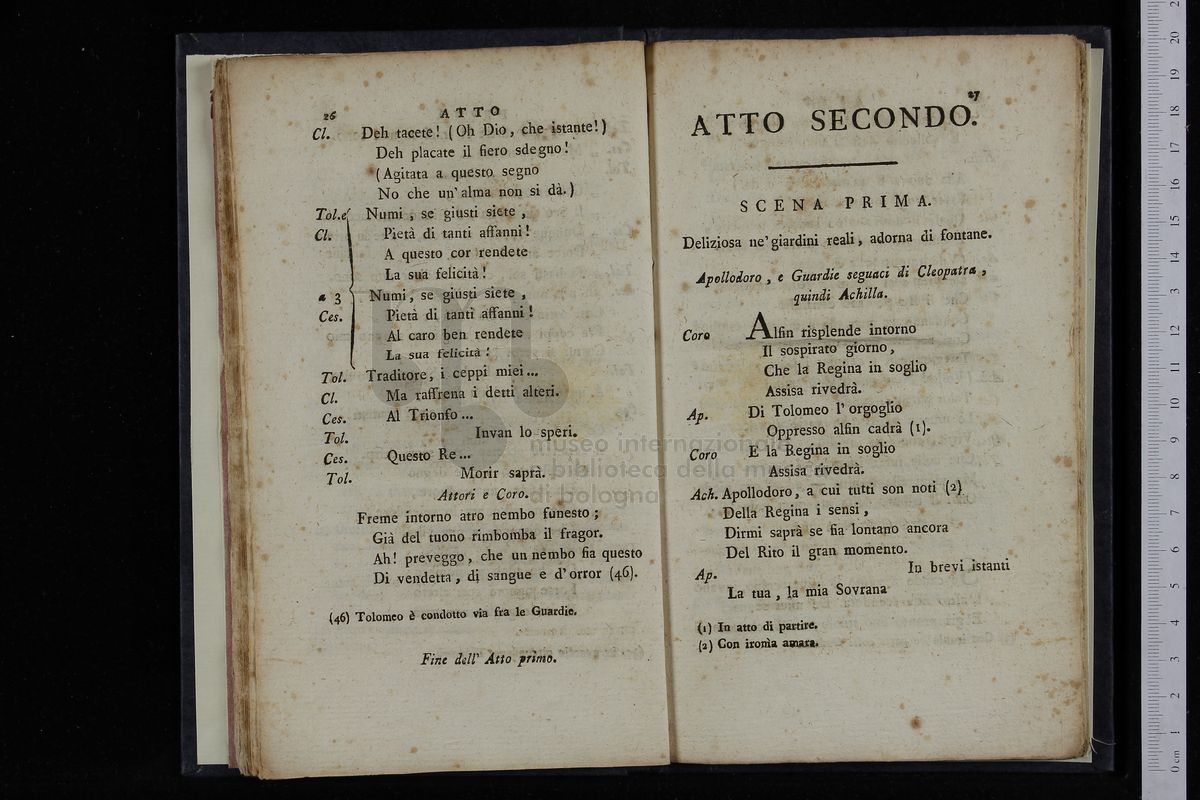 26
ATTO
Cl. Deh tacete! (Oh Dio, che istante!)
Deh placate il fiero sdegno!
(Agitata a questo segno
No che un' alma non si dà.)
Tol. e Numi, se giusti siete,
Cl. Pietà di tanti affanni!
A questo cor rendete
La sua felicità!
a 3 Numi, se giusti siete,
Ces. Pietà di tanti affanni!
Al caro ben rendete
La sua felicità!
Tol. Traditore, i ceppi miei...
Cl. Ma raffrena i detti alteri.
Ces. Al Trionfo...
Tol. Invan lo speri.
Ces. Questo Re...
Tol. Morir saprà.
Attori e Coro.
Freme intorno atro nembo funesto;
Già del tuono rimbomba il fragor.
Ah! preveggo, che un nembo fia questo
Di vendetta, di sangue e d'orror (46).
(46) Tolomeo è condotto via fra le Guardie.
Fine dell' Atto primo.
27
ATTO SECONDO.
SCENA PRIMA.
Deliziosa ne' giardini reali, adorna di fontane.
Apollodoro, e Guardie seguaci di Cleopatra,
quindi Achilla.
Coro Alfin risplende intorno
Il sospirato giorno,
Che la Regina in soglio
Assisa rivedrà.
Ap. Di Tolomeo l' orgoglio
Oppresso alfin cadrà (1).
Coro E la Regina in soglio
Assisa rivedrà.
Ach. Apollodoro, a cui tutti son noti (2)
Della Regina i sensi,
Dirmi saprà se fia lontano ancora
Del Rito il gran momento.
Ap. In brevi istanti
La tua, la mia Sovrana
(1) In atto di partire.
(2) Con ironìa amara.
museo internazionale
biblioteca della
di bologna
0 cm 1 2 3 4 5 6 7 8 9 10 11 12 13 14 15 16 17 18 19 20